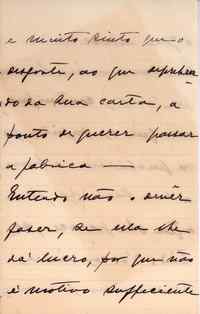 e muito sinto que o
desgoste, ao que deprehen
do da sua carta, a
ponto de querer passar
a fabrica —
Entendo não o dever
fazer, se ella lhe
dá lucro, por que não
é motivo sufficiente